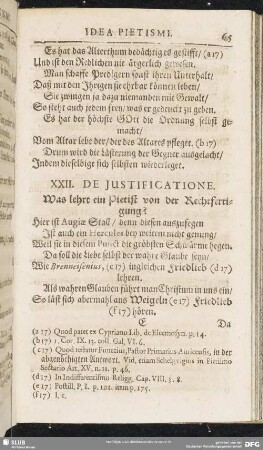 IDEA PIETISMI. 65
Es hat das Alterthum bedächtig es gestifft/ (a 17)
Und ist den Redlichen nie ärgerlich gewesen.
Man schaffe Predigern sonst ihren Unterhalt/
Daß mit den Ihrigen sie ehrbar können leben/
Sie zwingen ja dazu niemanden mit Gewalt/
So steht auch jedem frey, was er gedenckt zu geben.
Es hat der höchste GOtt die Ordnung selbst ge-
macht/
Vom Altar lebe der/ der des Altares pfleget. (b 17)
Drum wird die Lästerung der Gegner ausgelacht/
Indem dieselbige sich selbsten wiederleget.
XXII. DE JUSTIFICATIONE.
Was lehrt ein Pietist von der Rechtferti-
gung?
Hier ist Augiæ Stall/ denn diesen auszufegen
Ist auch ein Hercules bey weitem nicht genung/
Weil sie in diesem Punct die gröbsten Schwärme hegen.
Da soll die Liebe selbst der wahre Glaube seyn/
Wie Brenneisenius, (c 17) ingleichen Friedlieb (d 17)
lehren.
Als wahren Glauben führt man Christum in uns ein/
So läst sich abermahl aus Weigeln (e 17) Friedlieb
(f 17) hören.
E Da
(a 17) Quod patet ex Cypriano Lib. de Eleemosyna. p. 14.
(b 17) 1. Cor. IX. 13. coll. Gal. VI. 6.
(c 17) Quod testatur Funccius, Pastor Primarius Auricensis, in der
abgenöthigten Antwort. Vid. etiam Schelvigius in Examine
Sectario Art. XV. n. 11. p. 46.
(d 17) In Indifferentismo Religg. Cap. VIII. 3. 8.
(e 17) Postill. P. I. p. 101. item p. 175.
(f 17) l. c.
SLUB